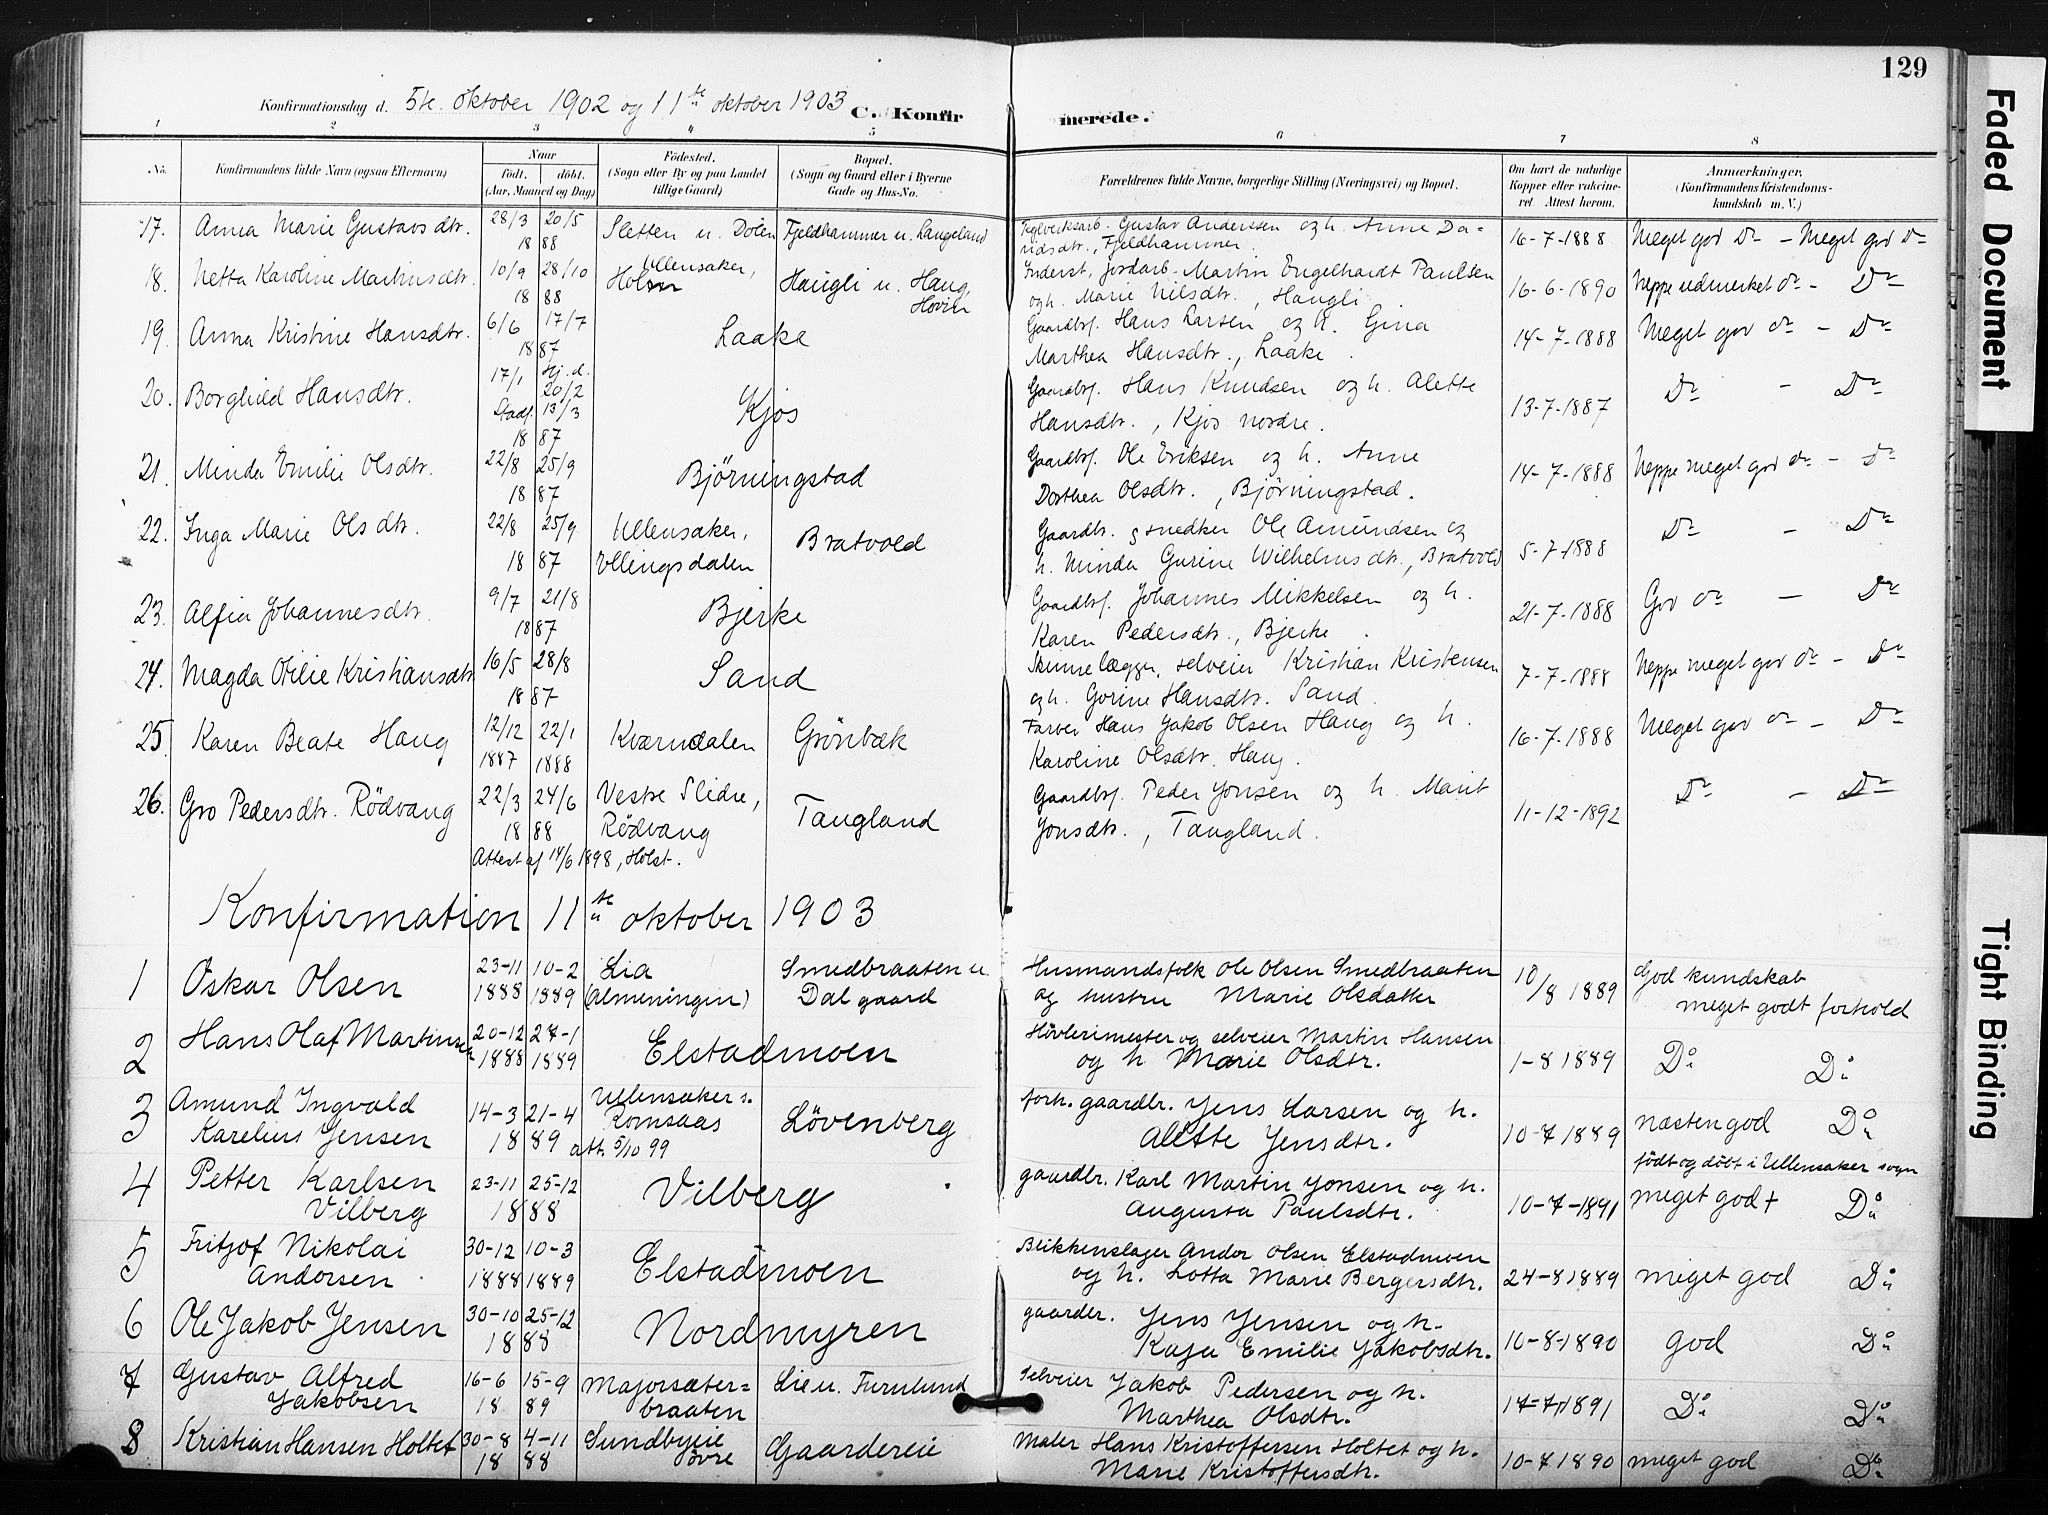 129
Konfirmationsdag d. 5te oktober 1902 og 11te oktober 1903 C. Konfirmerede.
1 2 3 4 5 6 7 8
No. Konfirmandens fulde Navn (ogsaa Efternavn) Naar født. døbt. (Aar, Maaned og Dag) Fødested. (Sogn eller By og paa Landet tillige Gaard) Bopæl. (Sogn og Gaard eller i Byerne Gade og Hus-No. Forældrenes fulde Navne, borgerlige Stilling (Næringsvei) og Bopæl. Om havt de naturlige Kopper eller vakcineret. Attest herom. Anmærkninger. (Konfirmandens Kristendomskundskab m. V.)
17. Anna Marie Gustavsdtr. 28/3 20/5 Sletten u. Dölen Fjeldhammer u. Langeland Teglverksarb. Gustav Andersen og h. Anne Da- 16-7-1888 Meget god Do - Meget god Do
18 88 vidsdtr., Fjeldhammer.
18. Netta Karoline Martinsdtr. 10/9 28/10 Ullensaker, Haugli u. Haug, Inderst, jordarb. Martin Engelhardt Paulsen 16-6-1890 Neppe udmerket do - Do
18 88 Hovin og h. Marie Nilsdtr., Haugli
19. Anna Kristine Hansdtr. 6/6 17/7 Laake Gaardbr. Hans Larsen og h. Gina 14-7-1888 Meget god do - Do
18 87 Marthea Hansdtr., Laake.
20. Borghild Hansdtr. 17/1 Hj. d. 20/2 Kjos Gaardbr. Hans Knudsen og h. Alette 13-7-1887 Do - Do
Stadf. 13/3 Hansdtr., Kjos nordre.
18 87
21. Minda Emilie Olsdtr. 22/8 25/9 Björningstad Gaardbr. Ole Eriksen og h. Anne 14-7-1888 Neppe meget god do - Do
18 87 Dorthea Olsdtr., Björningstad.
22. Inga Marie Olsdtr. 22/8 25/9 Ullensaker, Bratvold Gaardbr. & snedker Ole Amundsen og 5-7-1888 Do - Do
18 87 Ullingsdalen h. Minda Gurine Wilhelmsdtr., Bratvold
23. Alfia Johannesdtr. 9/7 21/8 Bjerke Gaardbr. Johannes Mikkelsen og h. 21-7-1888 God do - Do
18 87 Karen Pedersdtr., Bjerke.
24. Magda Otilie Kristiansdtr 16/5 28/8 Sand selveier Kristian Kristensen 7-7-1888 Neppe meget god do - Do
18 87 og h. Gorine Hansdtr. Sand.
25. Karen Beate Haug 12/12 22/1 Kværndalen Grönbæk Farver Hans Jakob Olsen Haug og h. 16-7-1888 Meget god do - Do
1887 1888 Karoline Olsdtr. Haug.
26. Gro Pedersdtr. Rödvang 22/3 24/6 Vestre Slidre, Taugland Gaardbr. Peder Jonsen og h. Marit 11-12-1892 Do - Do
18 88 Rödvang Jonsdtr., Taugland.
Attest af 14/6 1898, Holst.
Konfirmation 11te oktober 1903
1 Oskar Olsen 23-11 10-2 Lia Smedbraaten u Husmandsfolk Ole Olsen Smedbraaten 10/8 1889 God kundskab
1888 1889 (Almeningen) Dalgaard og hustru Marie Olsdatter meget godt forhold
2 Hans Olaf Martinsen 20-12 27-1 Elstadmoen Hövlerimester og selveier Martin Hansen 1-8 1889 Do Do
1888 1889 og h Marie Olsdtr.
3 Amund Ingvald 14-3 21-4 Ullensaker s. Lövenberg forh. gaardbr. Jens Larsen og h. 10-7 1889 næsten god Do
Karelius Jensen 18 89 Romsaas Alette Jensdtr.
att. 5/10 99 födt og döbt i Ullensaker sogn
4 Petter Karlsen 23-11 25-12 Vilberg gaardbr. Karl Martin Jonsen og h. 10-7-1891 meget god + Do
Vilberg 18 88 Augusta Paulsdtr.
5 Fritjof Nikolai 30-12 10-3 Elstadmoen Blikkenslager Andor Olsen Elstadmoen 24-8 1889 meget god Do
Andorsen 1888 1889 og h. Lotta Marie Bergersdtr.
6 Ole Jakob Jensen 30-10 25-12 Nordmyren gaardbr. Jens Jensen og h. 10-8-1890 god Do
18 88 Kaja Emilie Jakobsdtr.
7 Gustav Alfred 16-6 15-9 Majorsæter= Lie u. Furulund Selveier Jakob Pedersen og h. 17-7-1891 Do Do
Jakobsen 18 89 braaten Marthea Olsdtr.
8 Kristian Hansen Holtet 30-8 4-11 Sundbyeie Gaardereie Maler Hans Kristoffersen Holtet og h. 10-7 1890 meget god Do
18 88 övre Marie Kristoffersdtr.
Faded Document
Tight Binding